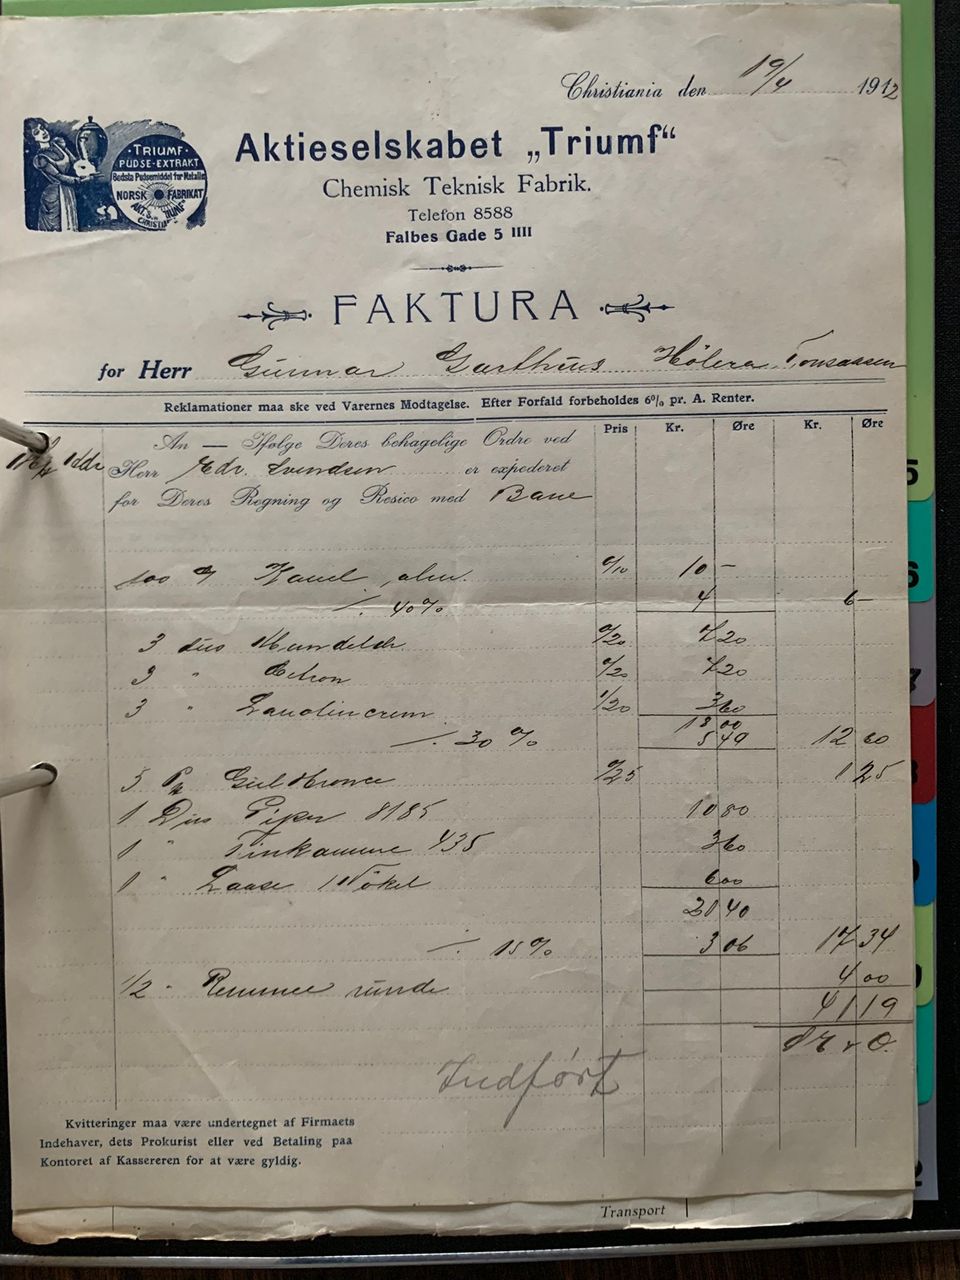 Christiania den 19/4 1912
TRIUMF
PUDSE-EXTRAKT
Bedste Pudsemiddel for Metaller
NORSK FABRIKAT
Aktieselskabet „Triumf“
Chemisk Teknisk Fabrik.
Telefon 8588
Falbes Gade 5 IIII
FAKTURA
for Herr Gunnar Garthus Hølera Tonsaasen
Reklamationer maa ske ved Varernes Modtagelse. Efter Forfald forbeholdes 6% pr. A. Renter.
Pris Kr. Øre Kr. Øre
An — Ifølge Deres behagelige Ordre ved
Herr Edv. Svendsen er expederet
for Deres Regning og Resico med Bane
100 Kanel alm. 10 -
./. 40% 4 6 -
3 dus Mandelol 7 20
3 " Citron 7 20
3 " Lanolincrem 1/20 3 60
18 00
./. 30 % 5 40 12 60
5 Guldbronce 1 25
1 Dus Piper 8185 10 80
1 " Finkamme 435 3 60
1 " Laase 1 Nökel 6 00
20 40
./. 15% 3 06 17 34
1/2 " Remmee runde 4 00
41 19
Indført
Kvitteringer maa være undertegnet af Firmaets
Indehaver, dets Prokurist eller ved Betaling paa
Kontoret af Kassereren for at være gyldig.
Transport